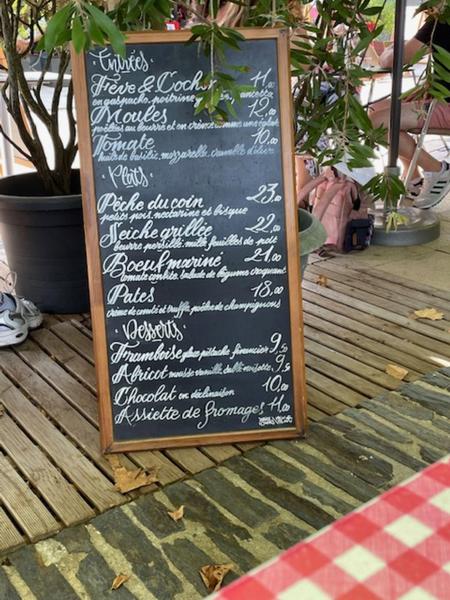 Entrées
Fève & Cochon 11,00
en gaspacho, poitrine
Moules 12,00
poêlées au beurre et en crème comme une
Tomate 10,00
huile de basilic, mozzarella, crumble d'olive
Plats
Pêche du coin 23,00
petits pois, nectarine et bisque
Seiche grillée 22,00
beurre persillé
Boeuf mariné 21,00
tomate confite, salade de légumes croquants
Pates 18,00
crème de comté et truffe, poêlée de champignons
Desserts
Framboise glace pistache, financier 9,50
Abricot mousse vanille, sablé noisette, 9,50
Chocolat en déclinaison 10,00
Assiette de fromages 11,00